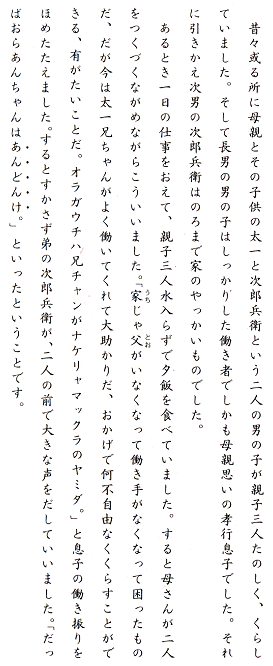 昔々或る所に母親とその子供の太一と次郎兵衛という二人の男の子が親子三人たのしく、くらし
ていました。そして長男の男の子はしっかりした働き者でしかも母親思いの孝行息子でした。それ
に引きかえ次男の次郎兵衛はのろまで家のやっかいものでした。
あるとき一日の仕事をおえて、親子三人水入らずで夕飯を食べていました。すると母さんが二人
をつくづくながめながらこういいました。『家じゃ父がいなくなって働き手がなくなって困ったもの
だ、だが今は太一兄ちゃんがよく働いてくれて大助かりだ、おかげで何不自由なくくらすことがで
きる、有がたいことだ。オラガウチハ兄チャンがナケリャマックラのヤミダ。」と息子の働き振りを
ほめたたえました。するとすかさず弟の次郎兵衛が、二人の前で大きな声をだしていいました。『だっ
ばおらあんちゃんはあんどんけ。」といったということです。